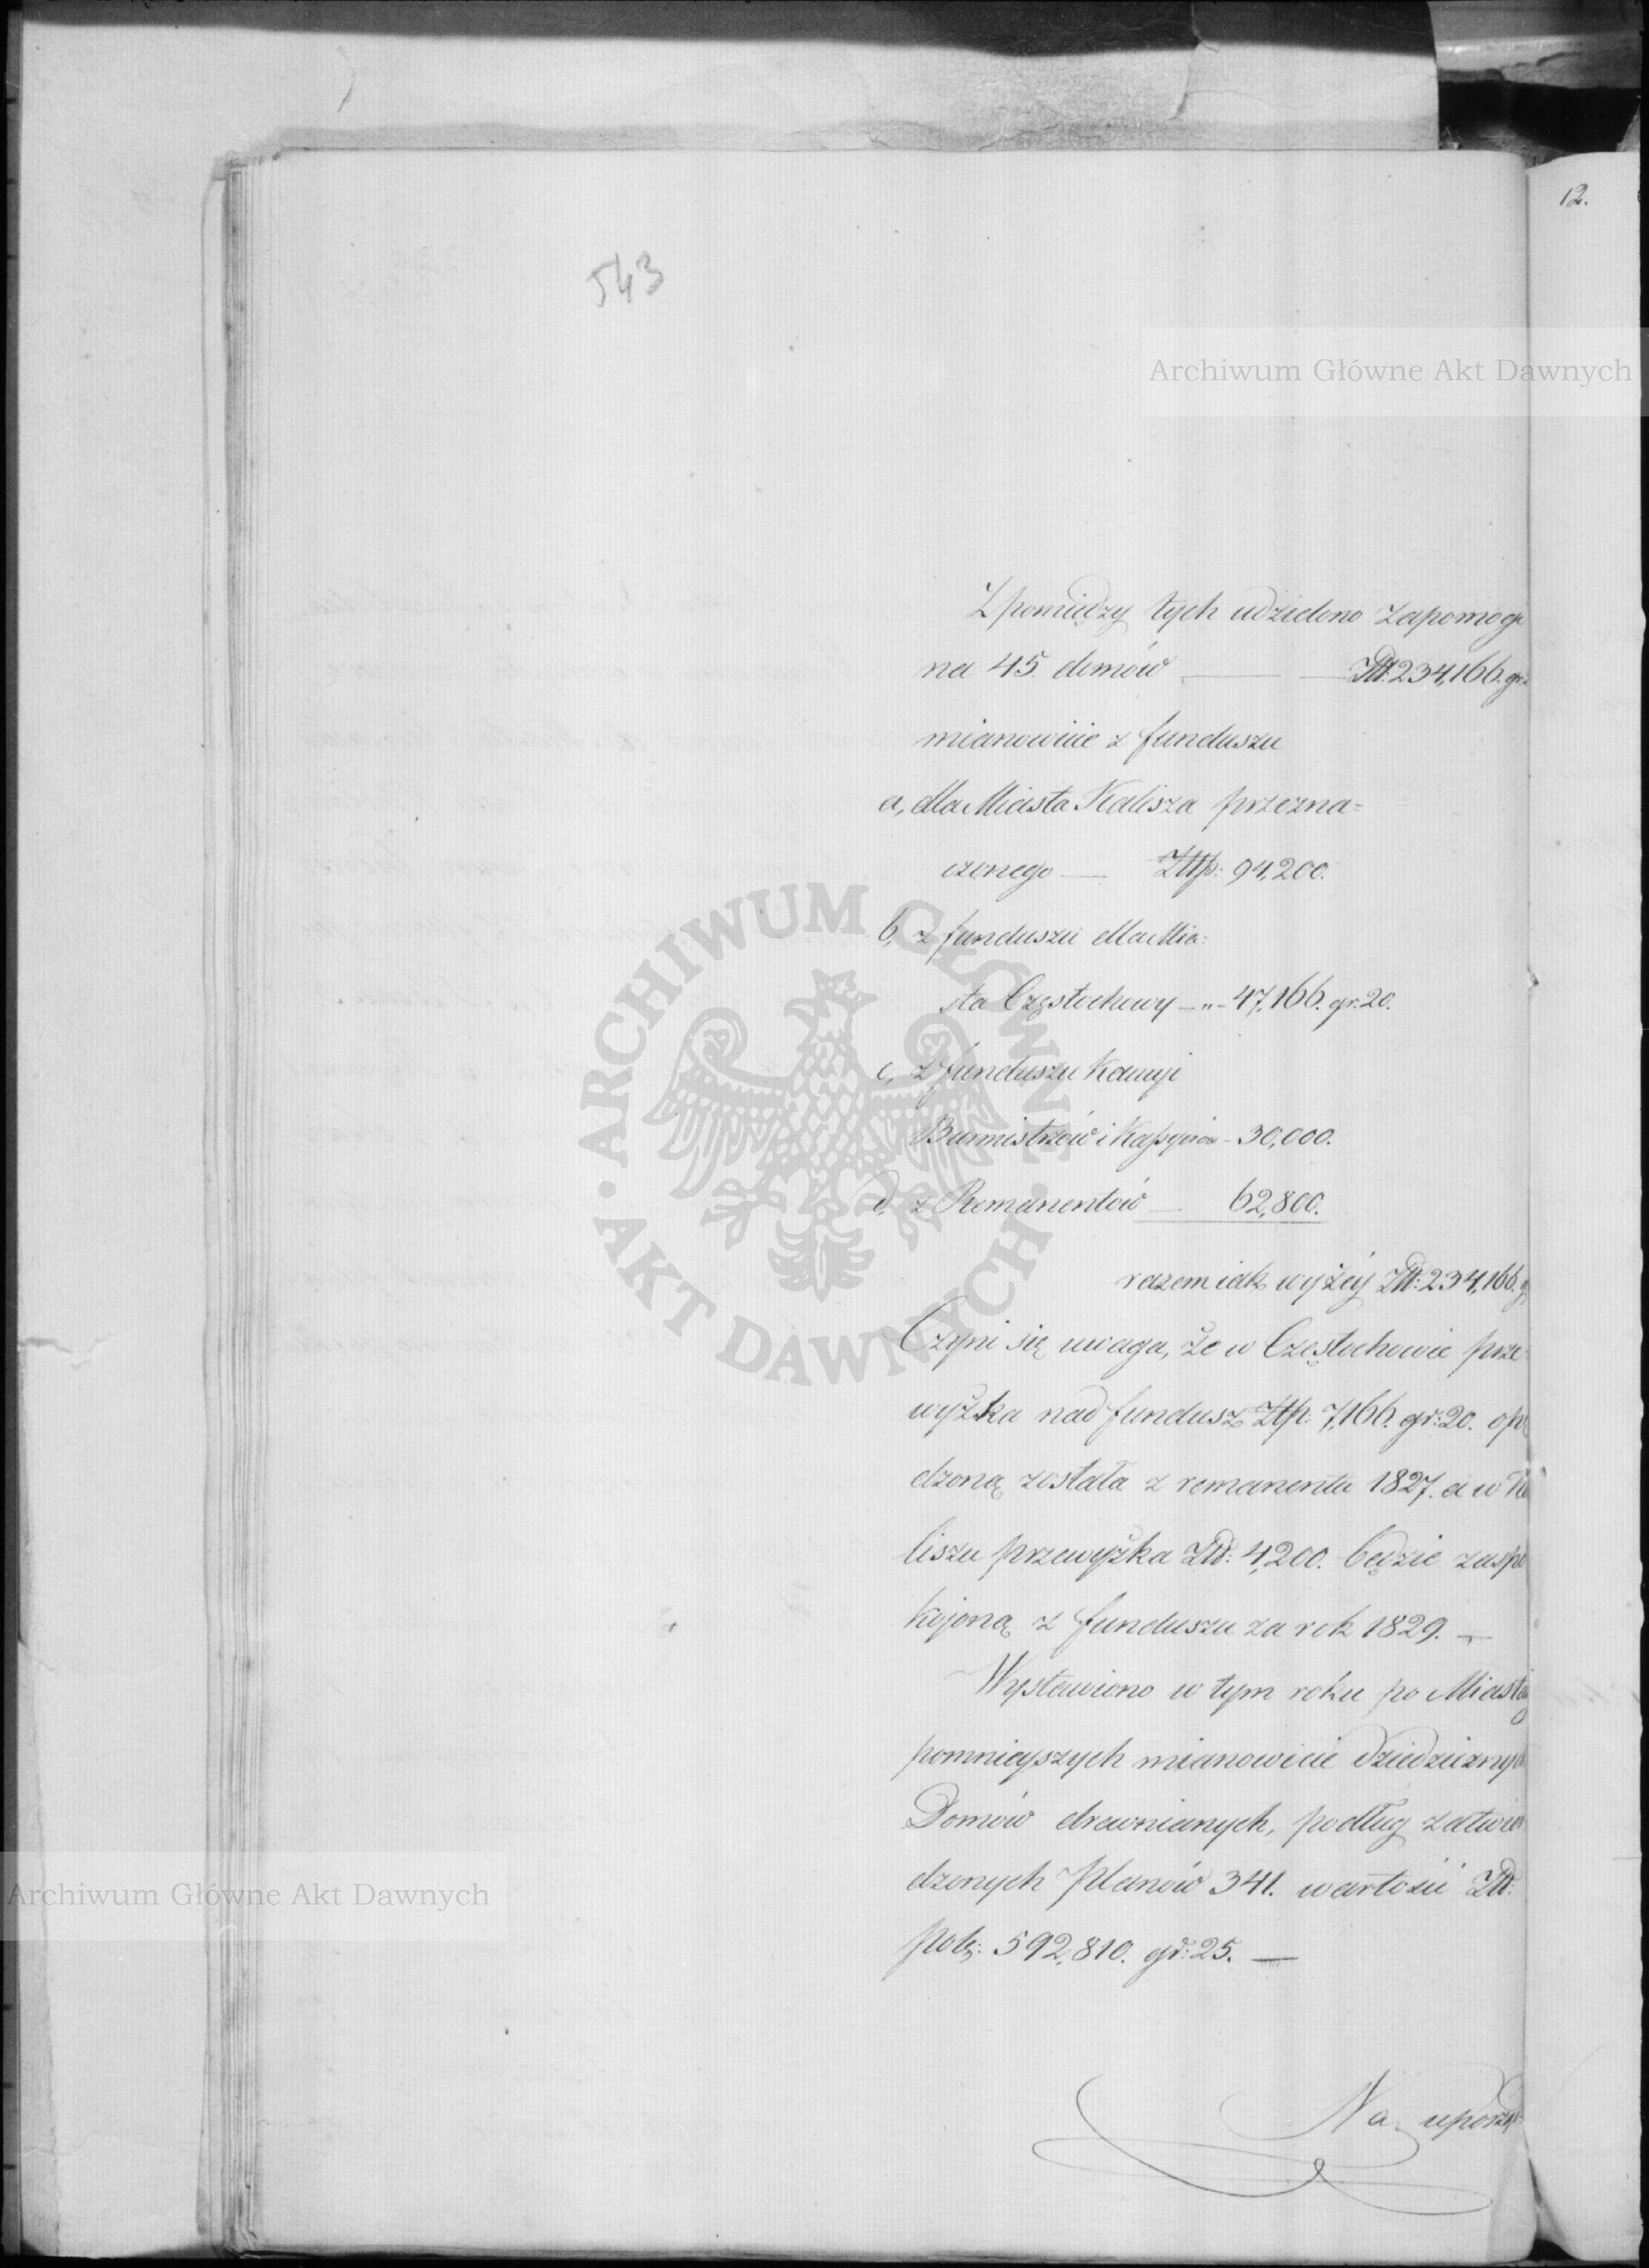 12.
543
Archiwum Główne Akt Dawnych
Z pomiędzy tych udzielono zapomogi
na 45. domów — Złt: 234,166. gr:
mianowicie z funduszu
a, dla Miasta Kalisza przezna=
czonego — Złtp: 94,200.
b, z funduszu dla Mia=
sta Częstochowy — " — 47,166. gr: 20.
c, z funduszu Kaucyi
Burmistrzów i Kassyerów - 30,000.
d, z Remanentów — 62,800.
razem iak wyżéy Złt: 234,166. g
Czyni się uwaga, że w Częstochowie prze=
wyżka nad fundusz Złtp: 7,166. gr: 20. opę
dzoną została z remanentu 1827. a w Ka
liszu przewyżka Złt: 4,200. będzie zaspo
kojoną z funduszu za rok 1829. —
Wystawiono w tym roku po Miasta
pomnieyszych mianowicie dziedzicznych
Domów drewnianych, podług zatwier
dzonych planów 341. wartości Złt:
pols: 592,810. gr: 25. —
Na uporzą
ARCHIWUM GŁÓWNE AKT DAWNYCH
Archiwum Główne Akt Dawnych